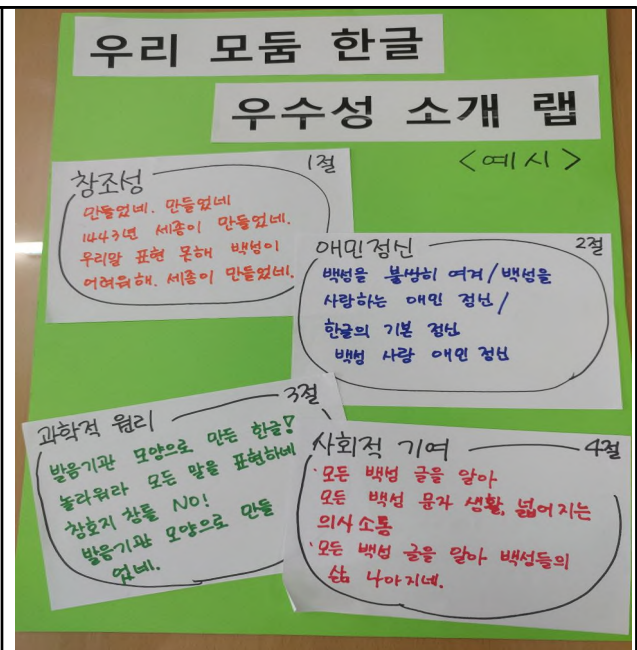 우리 모둠 한글
우수성 소개 랩
<예시>
창조성 1절
만들었네. 만들었네
1443년 세종이 만들었네.
우리말 표현 못해 백성이
어려워해. 세종이 만들었네.
애민정신 2절
백성을 불쌍히 여겨/백성을
사랑하는 애민 정신/
한글의 기본 정신
백성 사랑 애민 정신
과학적 원리 3절
발음기관 모양으로 만든 한글!
놀라워라 모든 말을 표현하네
창호지 창틀 NO!
발음기관 모양으로 만들
었네.
사회적 기여 4절
·모든 백성 글을 알아
모든 백성 문자 생활, 넓어지는
의사소통
·모든 백성 글을 알아 백성들의
삶 나아지네.